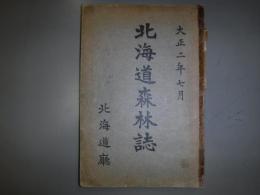 大正二年七月
北海道森林誌
北海道廳